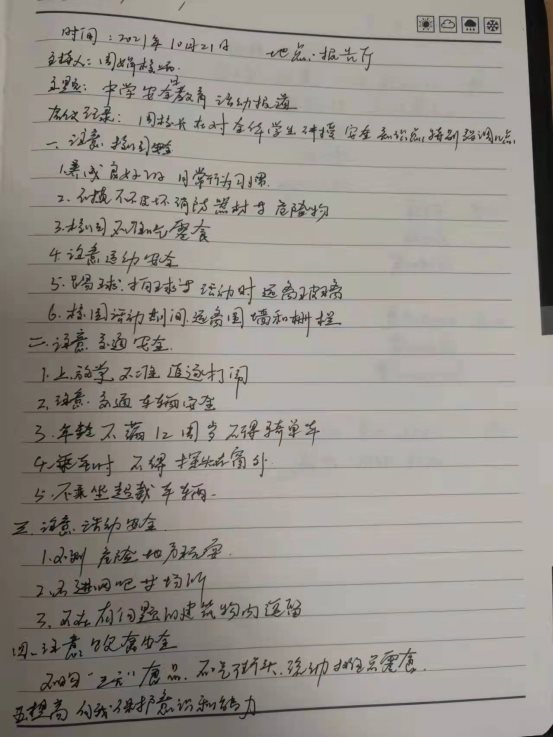 时间：2021年10月21日 地点：报告厅
主持人：周娟校长
主题：中学安全教育活动报道
会议记录：周校长在对全体学生讲授安全知识点，特别强调几点
一、注意校园安全
1.养成良好的日常行为习惯
2.不摸不破坏消防器材与危险物
3.校园不准吃零食
4.注意运动安全
5.踢球、拍球等活动时远离玻璃
6.校园活动期间远离围墙和栅栏
二、注意交通安全
1.上放学不准追逐打闹
2.注意交通车辆安全
3.年龄不满12周岁不得骑单车
4.乘车时不得探头在窗外
5.不乘坐超载车辆
三、注意活动安全
1.不到危险地方玩耍
2.不进网吧等场所
3.不在有问题的建筑物内逗留
四、注意饮食安全
不购"三无"食品，不吃街头流动摊点零食.
五.提高自我保护意识和能力